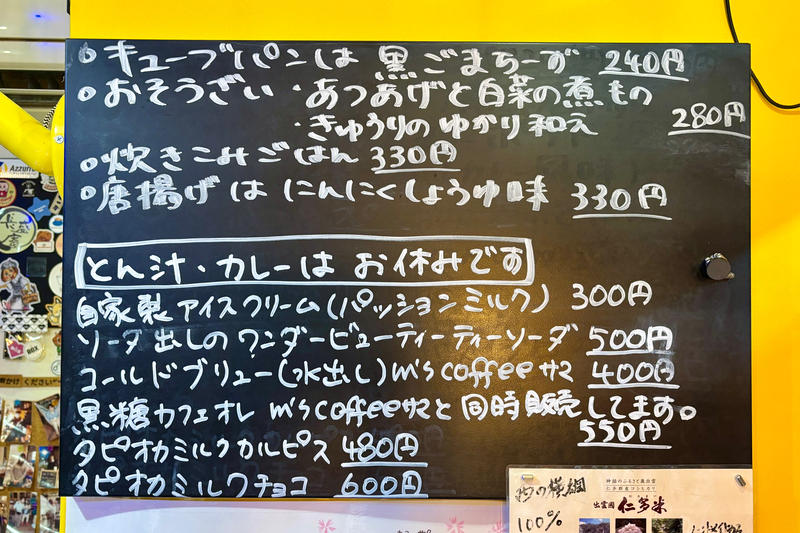 ・キューブパンは 黒ごまちーず 240円
・おそうざい ・あつあげと白菜の煮もの
・きゅうりのゆかり和え 280円
・炊きこみごはん 330円
・唐揚げは にんにくしょうゆ味 330円
とん汁・カレーは お休みです
自家製アイスクリーム(パッションミルク) 300円
ソーダ出しの ワンダービューティーティーソーダ 500円
コールドブリュー(水出し) m's coffeeサマ 400円
黒糖カフェオレ m's coffeeサマと同時販売してます。
550円
タピオカミルクカルピス 480円
タピオカミルクチョコ 600円
Azzurri
100%
神話のふるさと奥出雲
仁多郡産コシヒカリ
出雲國 仁多米